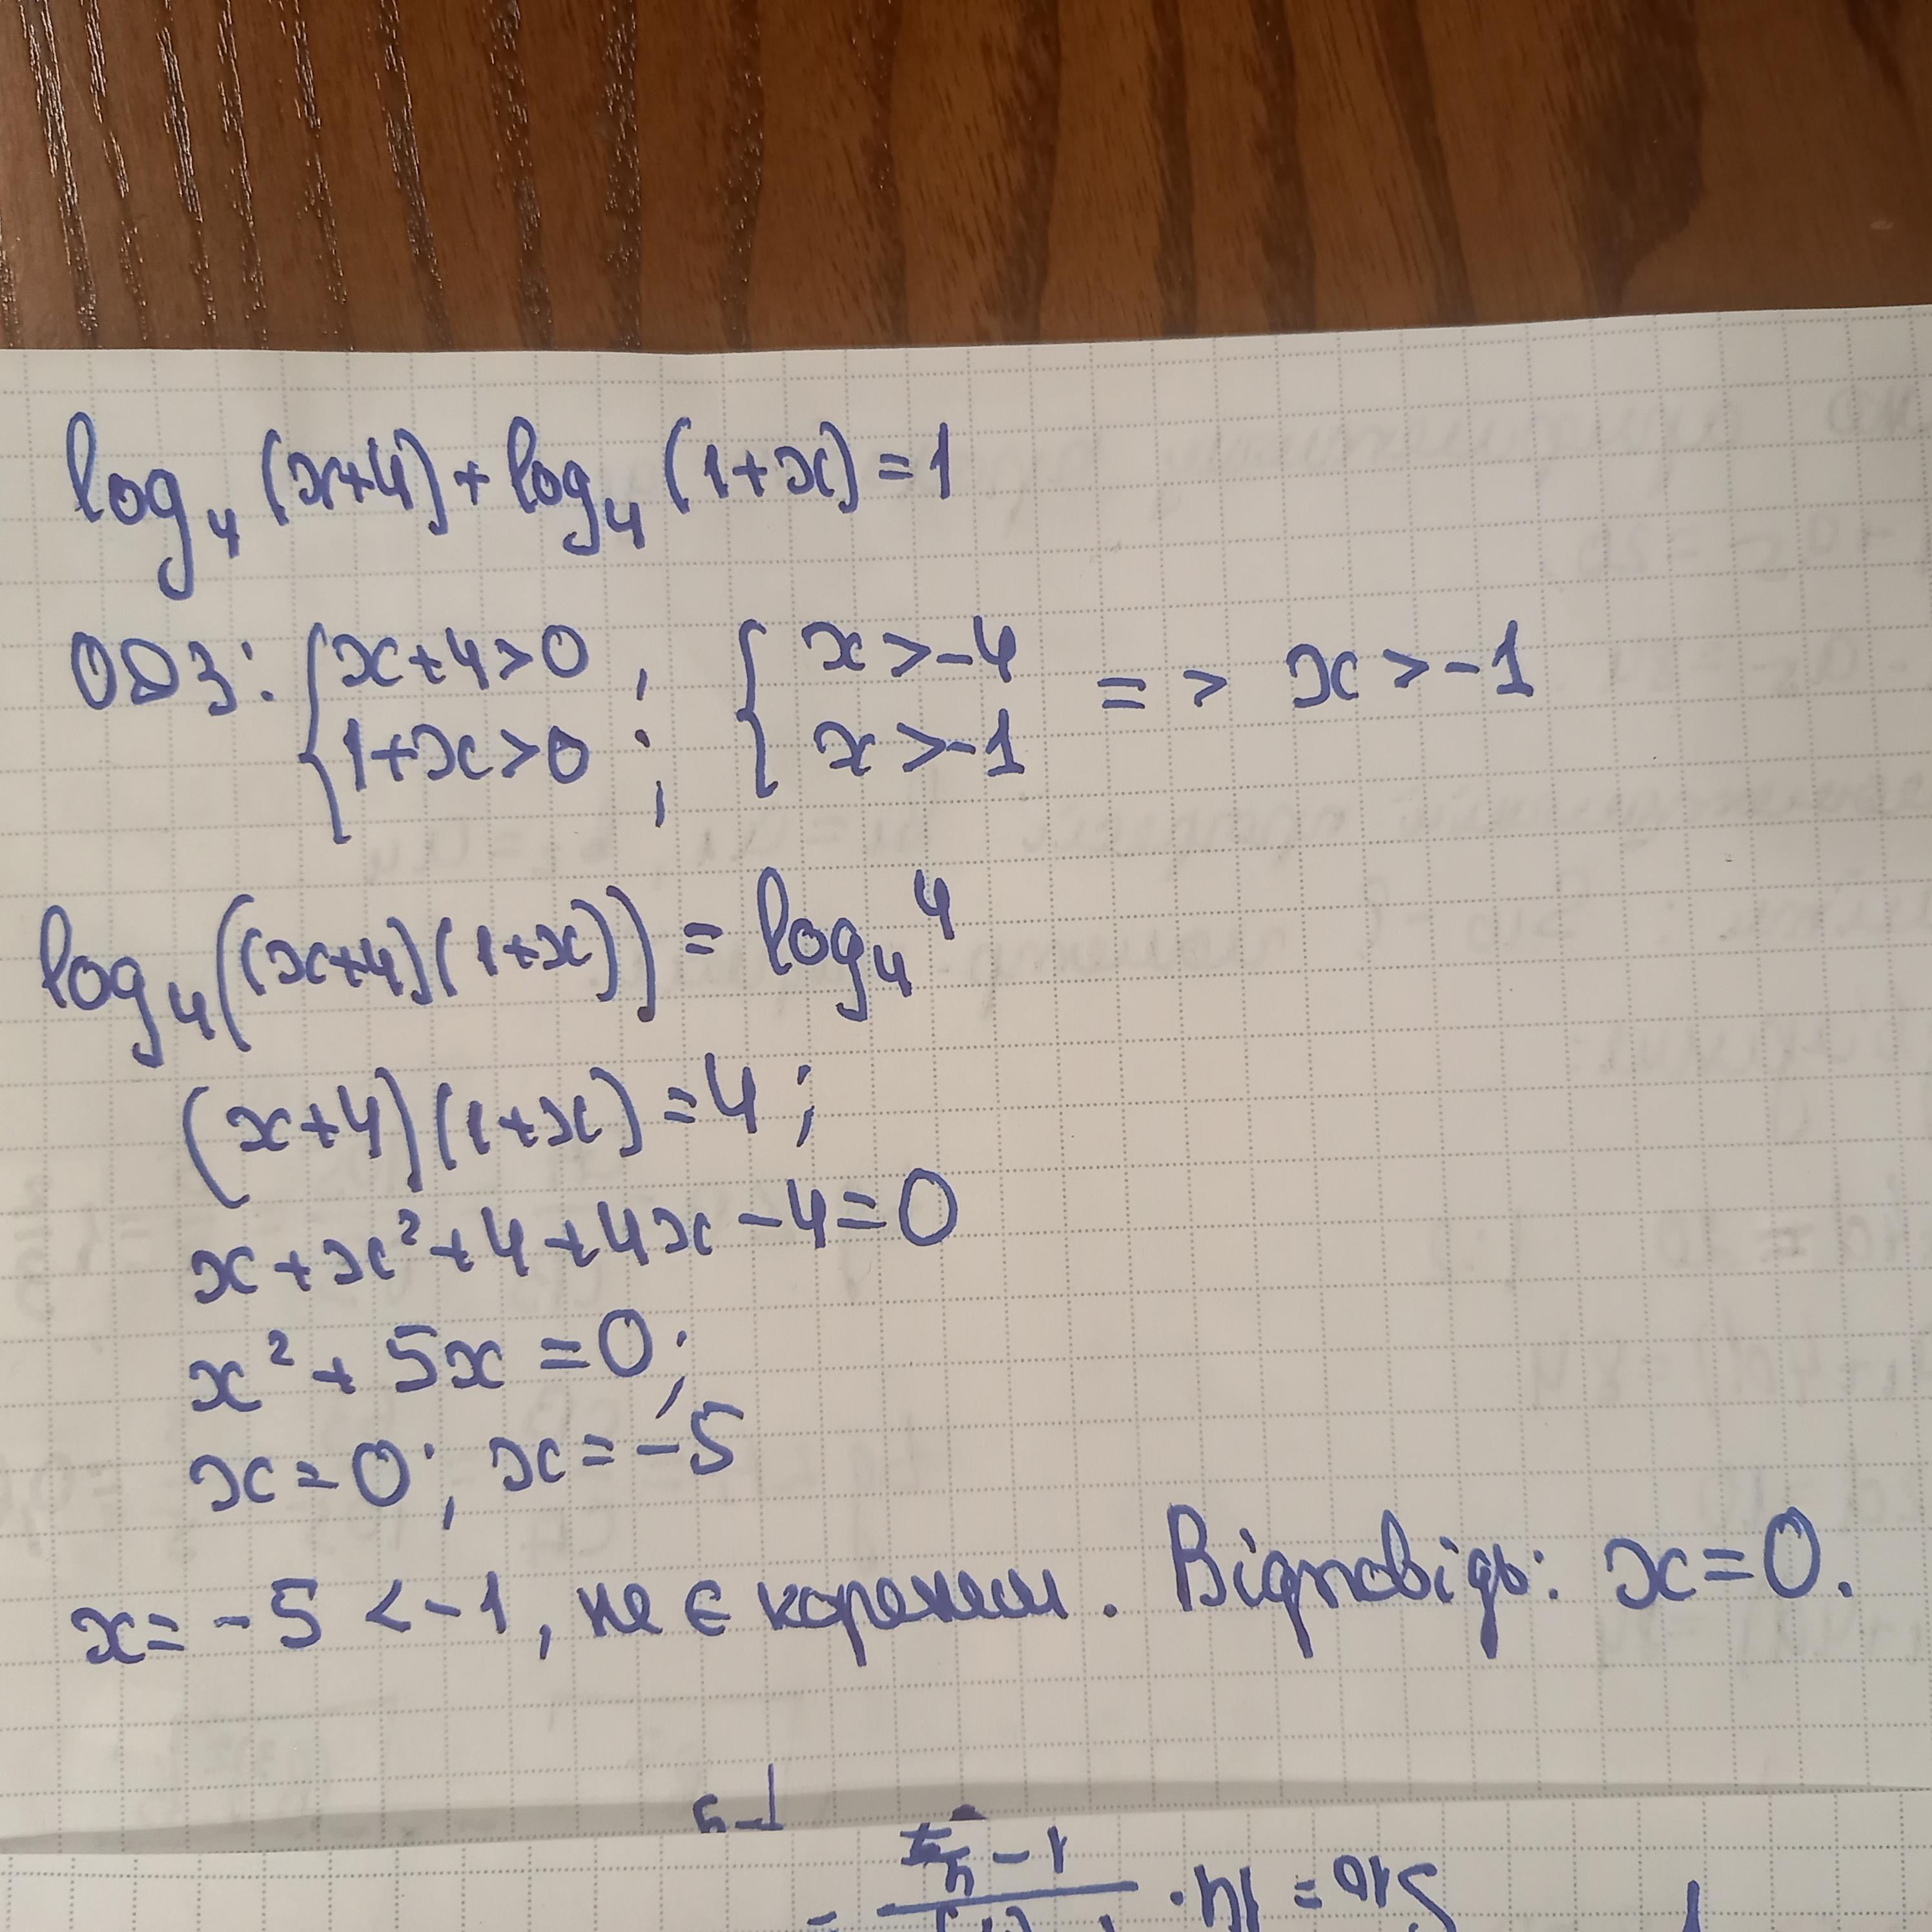 log₄(x+4)+log₄(1+x)=1
ОДЗ: {x+4>0; {x>-4 => x>-1
1+x>0; x>-1
log₄((x+4)(1+x))=log₄4
(x+4)(1+x)=4;
x+x²+4+4x-4=0
x²+5x=0;
x=0; x=-5
x=-5<-1, не є коренем. Відповідь: x=0.